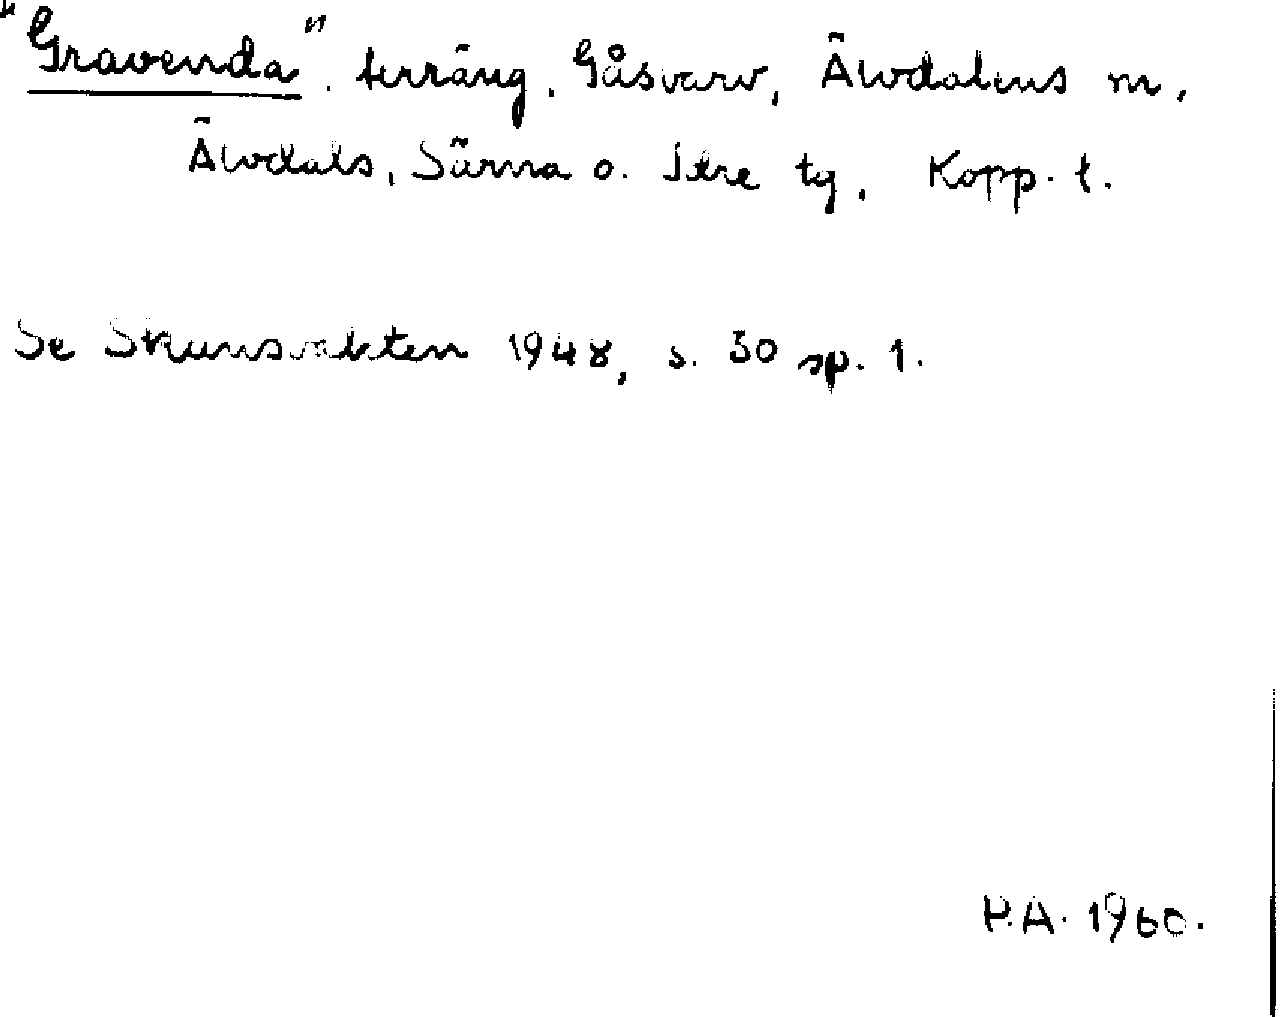 "Gravenda". terräng. Gåsvarv, Älvdalens m.
Älvdals, Särna o. Idre tg, Kopp. l.
Se Skansvakten 1948, s. 30 sp. 1.
P.A. 1960.